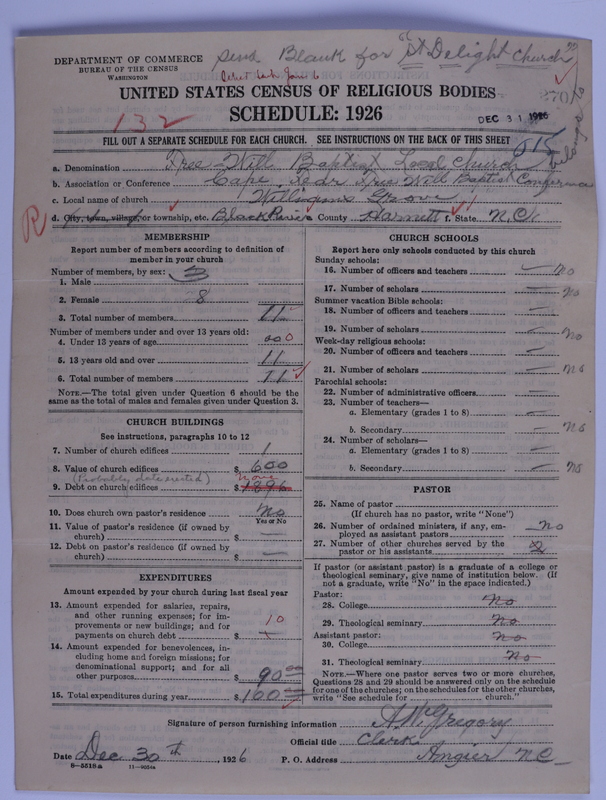 Send Blank for "St Delight Church"
DEPARTMENT OF COMMERCE
BUREAU OF THE CENSUS
WASHINGTON
UNITED STATES CENSUS OF RELIGIOUS BODIES
SCHEDULE: 1926
132
DEC 31 1926
FILL OUT A SEPARATE SCHEDULE FOR EACH CHURCH. SEE INSTRUCTIONS ON THE BACK OF THIS SHEET
a. Denomination Free Will Baptist Local Church
b. Association or Conference Cape Fear Free Will Baptist Conference
c. Local name of church Williams Grove
d. City, town, village, or township, etc. Black River County Harnett State N.C.
R
MEMBERSHIP
Report number of members according to definition of member in your church
Number of members, by sex:
1. Male 3
2. Female 8
3. Total number of members 11
Number of members under and over 13 years old:
4. Under 13 years of age 000
5. 13 years old and over 11
6. Total number of members 11
NOTE.—The total given under Question 6 should be the same as the total of males and females given under Question 3.
CHURCH BUILDINGS
See instructions, paragraphs 10 to 12
7. Number of church edifices 1
8. Value of church edifices $ 600
(Probably date erected) none
9. Debt on church edifices $ 1896
10. Does church own pastor's residence No
Yes or No
11. Value of pastor's residence (if owned by church) $ —
12. Debt on pastor's residence (if owned by church) $ —
EXPENDITURES
Amount expended by your church during last fiscal year
13. Amount expended for salaries, repairs, and other running expenses; for improvements or new buildings; and for payments on church debt $ 10
14. Amount expended for benevolences, including home and foreign missions; for denominational support; and for all other purposes $ 90 00
15. Total expenditures during year $ 100
CHURCH SCHOOLS
Report here only schools conducted by this church
Sunday schools:
16. Number of officers and teachers — no
17. Number of scholars — no
Summer vacation Bible schools:
18. Number of officers and teachers —
19. Number of scholars — no
Week-day religious schools:
20. Number of officers and teachers —
21. Number of scholars — no
Parochial schools:
22. Number of administrative officers —
23. Number of teachers—
a. Elementary (grades 1 to 8) —
b. Secondary — no
24. Number of scholars—
a. Elementary (grades 1 to 8) —
b. Secondary — no
PASTOR
25. Name of pastor
(If church has no pastor, write "None")
26. Number of ordained ministers, if any, employed as assistant pastors no
27. Number of other churches served by the pastor or his assistants 2
If pastor (or assistant pastor) is a graduate of a college or theological seminary, give name of institution below. (If not a graduate, write "No" in the space indicated.)
Pastor:
28. College no
29. Theological seminary No
Assistant pastor:
30. College No
31. Theological seminary No
NOTE.—Where one pastor serves two or more churches, Questions 28 and 29 should be answered only on the schedule for one of the churches; on the schedules for the other churches, write "See schedule for church."
Signature of person furnishing information A. McGregory
Official title Clerk
Date Dec 30th, 1926 P. O. Address Angier N.C.
8—5518a 11—9034a